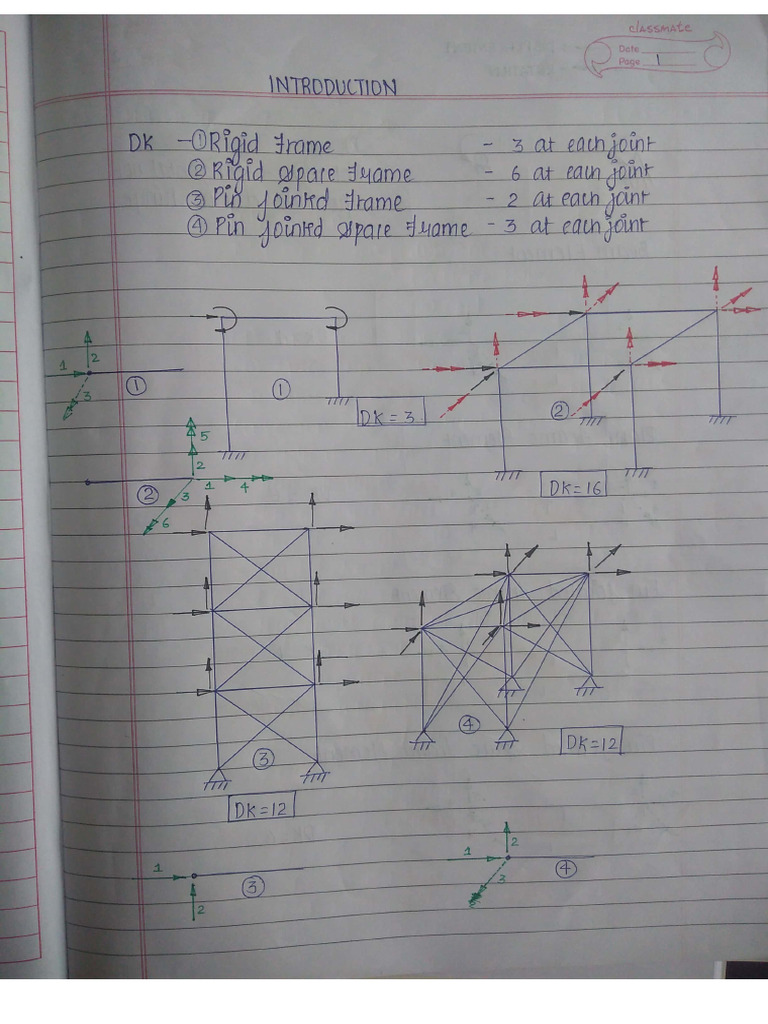 classmate
Date
Page 1
INTRODUCTION
DK - ① Rigid Frame - 3 at each joint
② Rigid Space Frame - 6 at each joint
③ Pin Jointed Frame - 2 at each joint
④ Pin Jointed Space Frame - 3 at each joint
1 2 3 ①
①
DK = 3
②
DK=16
5 2 1 4 3 6 ②
③
DK=12
④
DK=12
1 2 ③
1 2 3 ④